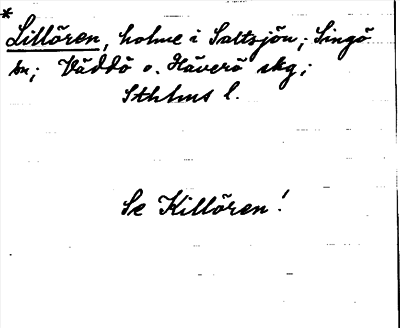 *
Lillören, holme i Saltsjön; Singö
sn; Väddö o. Häverö skg;
Sthlms l.
Se Killören!